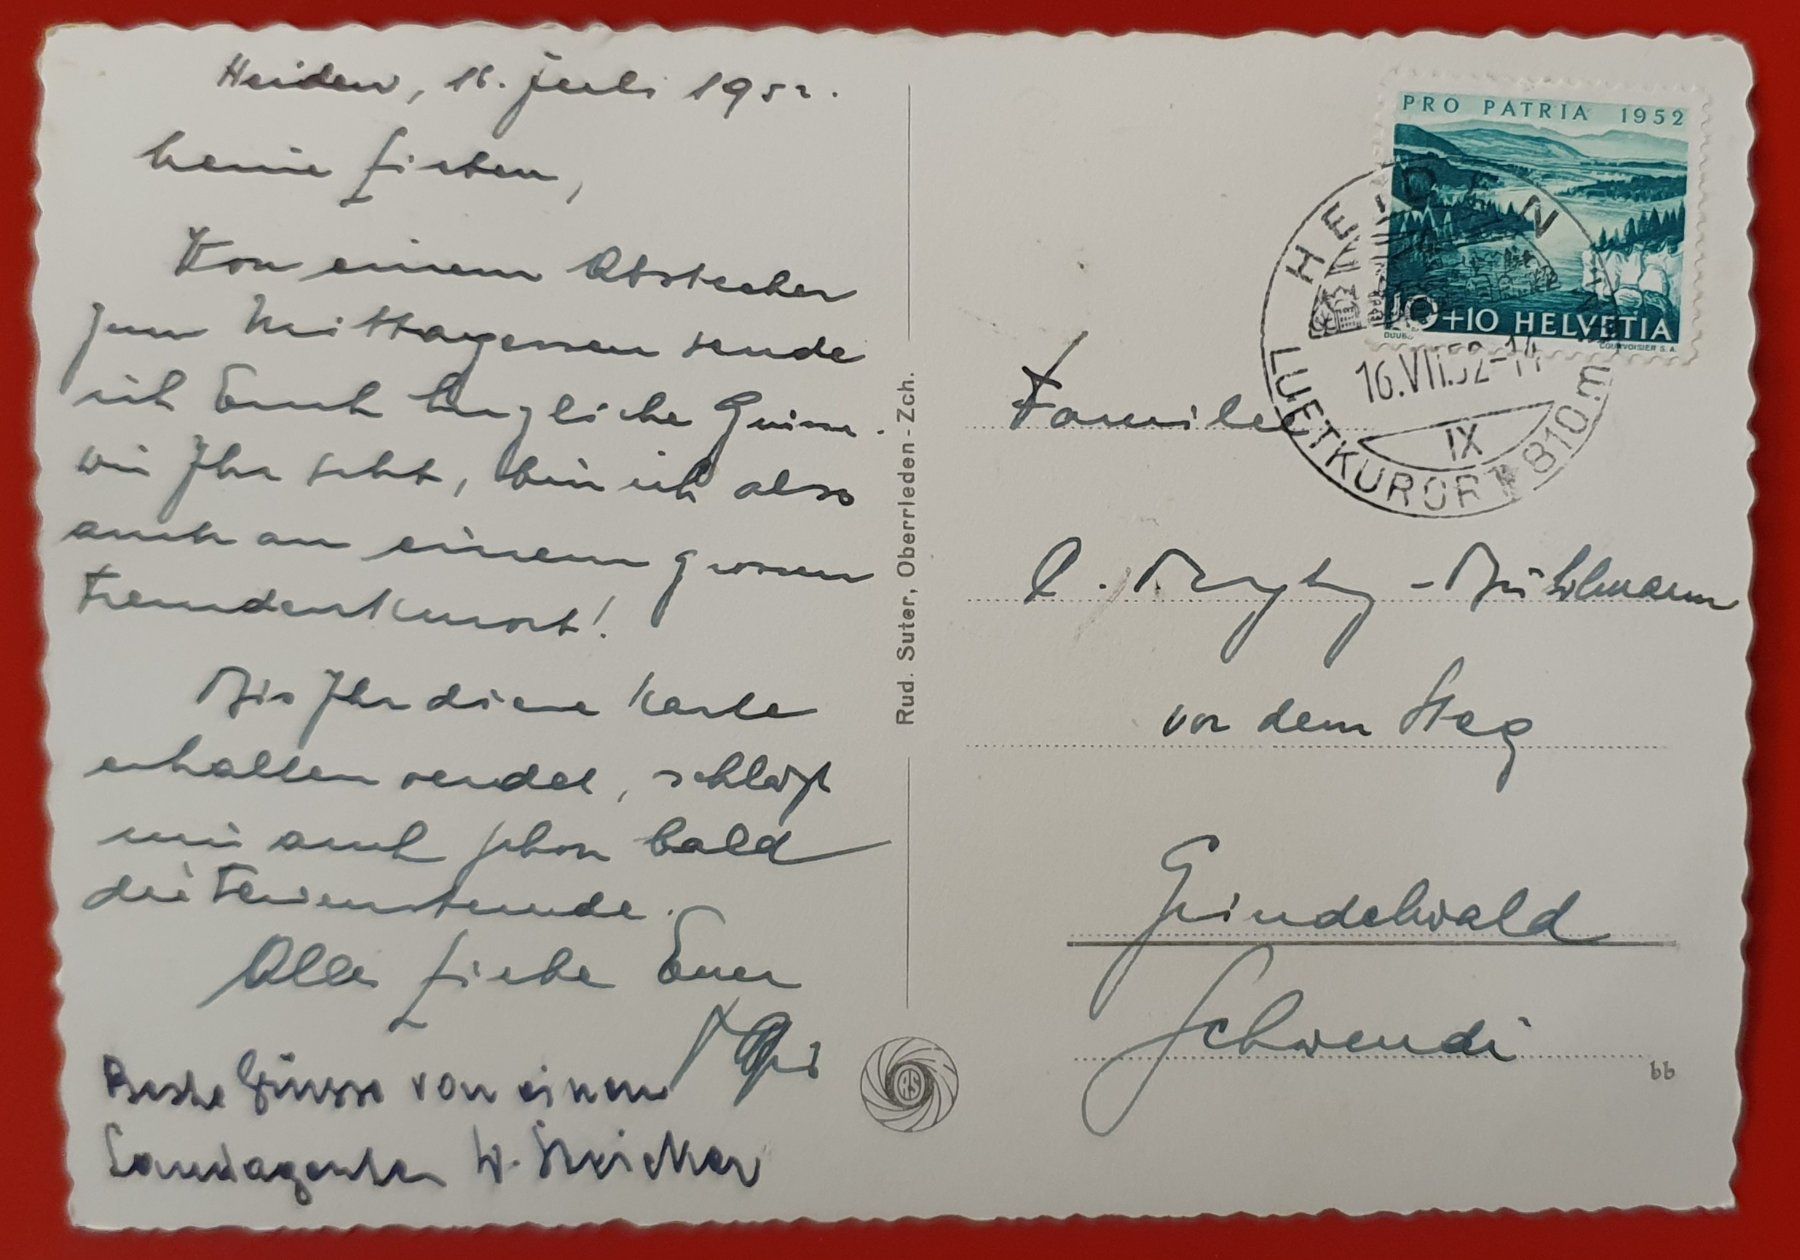 Heiden, 16. Juli 1952.
Meine Lieben,
Von einem Abstecher
zum Mittagessen sende
ich Euch herzliche Grüsse.
Wie Ihr seht, bin ich also
auch an einem grossen
Fremdenkurort!
Bis Ihr diese Karte
erhalten werdet, schlägt
mir auch schon bald
die Ferienstunde.
Alles Liebe Euer
Beste Grüsse von einem
W. Streicher
Rud. Suter, Oberrieden-Zch.
RS
PRO PATRIA 1952
10+10 HELVETIA
COURVOISIER S.A.
HEIDEN
16.VII.52-14
IX
LUFTKURORT 810 m
Familie
-Bühlmann
vor dem Steg
Grindelwald
Schwendi
bb